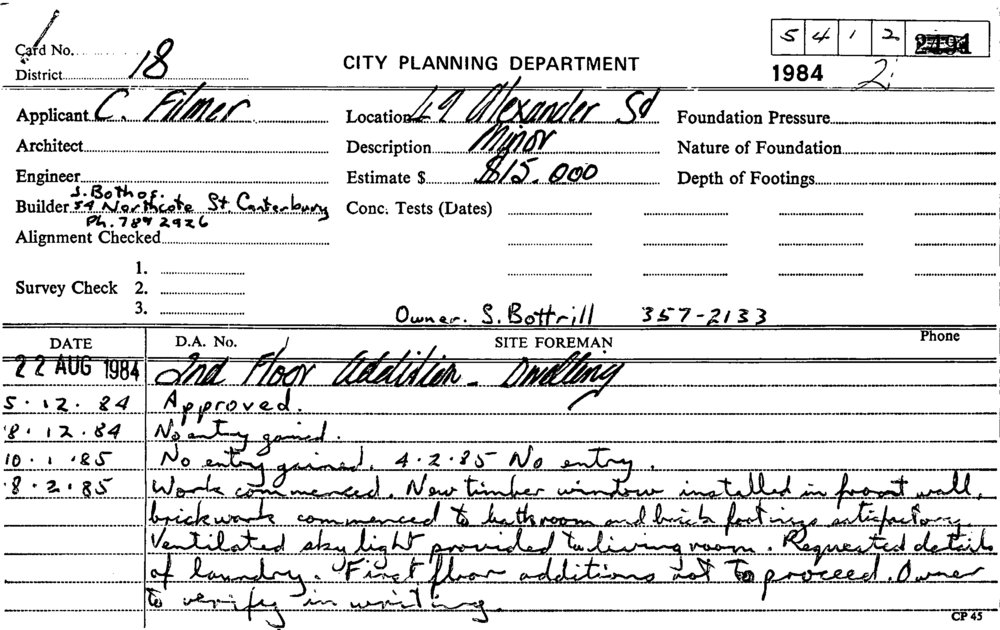 Card No.
5 4 1 2 2491
District 18
CITY PLANNING DEPARTMENT
1984 2
Applicant C. Filmer
Location 49 Alexander St
Foundation Pressure
Architect
Description Minor
Nature of Foundation
Engineer
Estimate $ $15.000
Depth of Footings
S. Bothos.
Builder 54 Northcote St. Canterbury
Ph. 789 2926
Conc. Tests (Dates)
Alignment Checked
Survey Check
1.
2.
3.
Owner. S. Bottrill 357-2133
DATE D.A. No. SITE FOREMAN Phone
22 AUG 1984 2nd Floor Addition - Dwelling
5.12.84 Approved.
8.12.84 No entry gained.
10.1.85 No entry gained. 4.2.85 No entry.
8.2.85 Work commenced. New timber window installed in front wall,
brickwork commenced to bathroom and brick footings satisfactory.
Ventilated sky light provided to living room. Requested details
of laundry. First floor additions not to proceed. Owner
to verify in writing.
CP 45